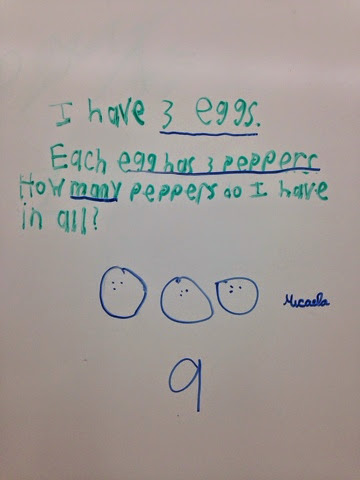 I have 3 eggs.
Each egg has 3 peppers
How many peppers do I have
in all?
Micaela
9